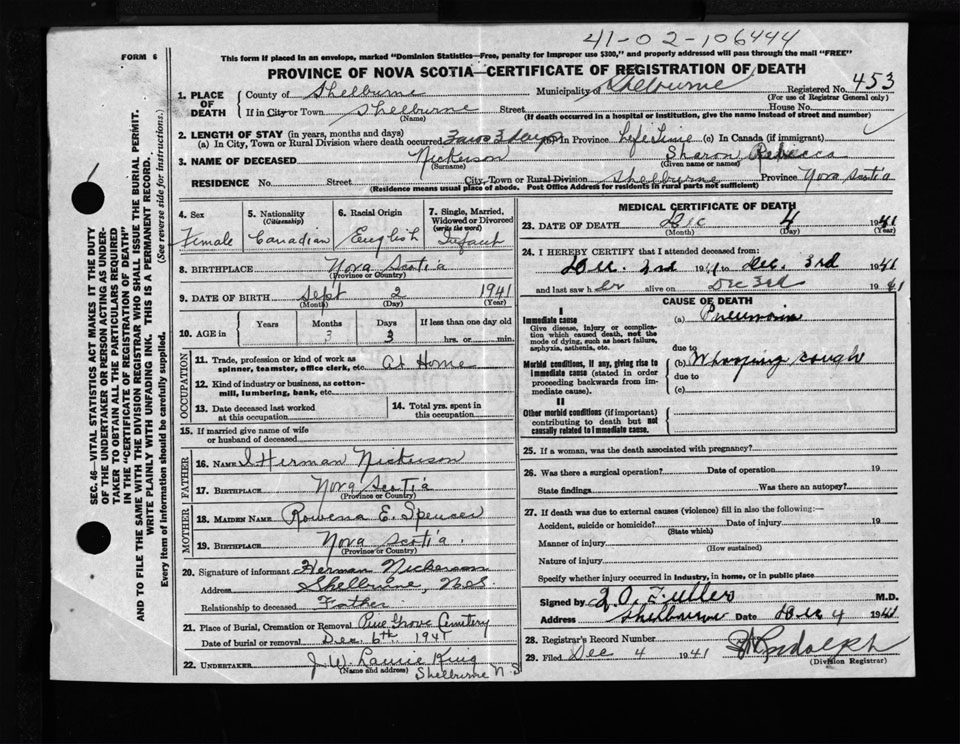 41-02-106444
FORM 6
This form if placed in an envelope, marked "Dominion Statistics—Free, penalty for improper use $300," and properly addressed will pass through the mail "FREE"
PROVINCE OF NOVA SCOTIA—CERTIFICATE OF REGISTRATION OF DEATH
1. PLACE OF DEATH
County of Shelburne Municipality of Shelburne Registered No. 453
(For use of Registrar General only)
If in City or Town Shelburne Street House No.
(Name) (If death occurred in a hospital or institution, give the name instead of street and number)
2. LENGTH OF STAY (in years, months and days)
(a) In City, Town or Rural Division where death occurred 3 mos 3 days (b) In Province Life Time (c) In Canada (if immigrant)
3. NAME OF DECEASED Nickerson Sharon Rebecca
(Surname) (Given name or names)
RESIDENCE No. Street City, Town or Rural Division Shelburne Province Nova Scotia
(Residence means usual place of abode. Post Office Address for residents in rural parts not sufficient)
4. Sex
Female
5. Nationality
(Citizenship)
Canadian
6. Racial Origin
English
7. Single, Married, Widowed or Divorced
(write the word)
Infant
8. BIRTHPLACE Nova Scotia
(Province or Country)
9. DATE OF BIRTH Sept 2 1941
(Month) (Day) (Year)
10. AGE in
Years Months Days If less than one day old
3 3 hrs. or min.
OCCUPATION
11. Trade, profession or kind of work as spinner, teamster, office clerk, etc. At Home
12. Kind of industry or business, as cotton-mill, lumbering, bank, etc.
13. Date deceased last worked at this occupation
14. Total yrs. spent in this occupation
15. If married give name of wife or husband of deceased
FATHER
16. NAME Herman Nickerson
17. BIRTHPLACE Nova Scotia
(Province or Country)
MOTHER
18. MAIDEN NAME Rowena E. Spencer
19. BIRTHPLACE Nova Scotia.
(Province or Country)
20. Signature of informant Herman Nickerson
Address Shelburne, N.S.
Relationship to deceased Father
21. Place of Burial, Cremation or Removal Pine Grove Cemetery
Date of burial or removal Dec. 6th. 1941
22. UNDERTAKER J. W. Laurie King
(Name and address) Shelburne N.S
MEDICAL CERTIFICATE OF DEATH
23. DATE OF DEATH Dec 4 1941
(Month) (Day) (Year)
24. I HEREBY CERTIFY that I attended deceased from:
Dec. 3rd 1941 to Dec. 3rd 1941
and last saw her alive on Dec 3rd 1941
CAUSE OF DEATH
I
Immediate cause (a) Pneumonia
Give disease, injury or complication which caused death, not the mode of dying, such as heart failure, asphyxia, asthenia, etc.
due to
Morbid conditions, if any, giving rise to immediate cause (stated in order proceeding backwards from immediate cause).
(b) Whooping cough
due to
(c)
II
Other morbid conditions (if important) contributing to death but not causally related to immediate cause.
25. If a woman, was the death associated with pregnancy?
26. Was there a surgical operation? Date of operation 19
State findings Was there an autopsy?
27. If death was due to external causes (violence) fill in also the following:—
Accident, suicide or homicide? Date of injury 19
(State which)
Manner of injury
(How sustained)
Nature of injury
Specify whether injury occurred in industry, in home, or in public place
Signed by Fuller M.D.
Address Shelbourne Date Dec 4 1941
28. Registrar's Record Number
29. Filed Dec 4 1941 Rudolph
(Division Registrar)
SEC. 46—VITAL STATISTICS ACT MAKES IT THE DUTY
OF THE UNDERTAKER OR PERSON ACTING AS UNDER-
TAKER TO OBTAIN ALL THE PARTICULARS REQUIRED
IN THE "CERTIFICATE OF REGISTRATION OF DEATH"
AND TO FILE THE SAME WITH THE DIVISION REGISTRAR WHO SHALL ISSUE THE BURIAL PERMIT.
WRITE PLAINLY WITH UNFADING INK. THIS IS A PERMANENT RECORD.
Every item of information should be carefully supplied. (See reverse side for instructions.)